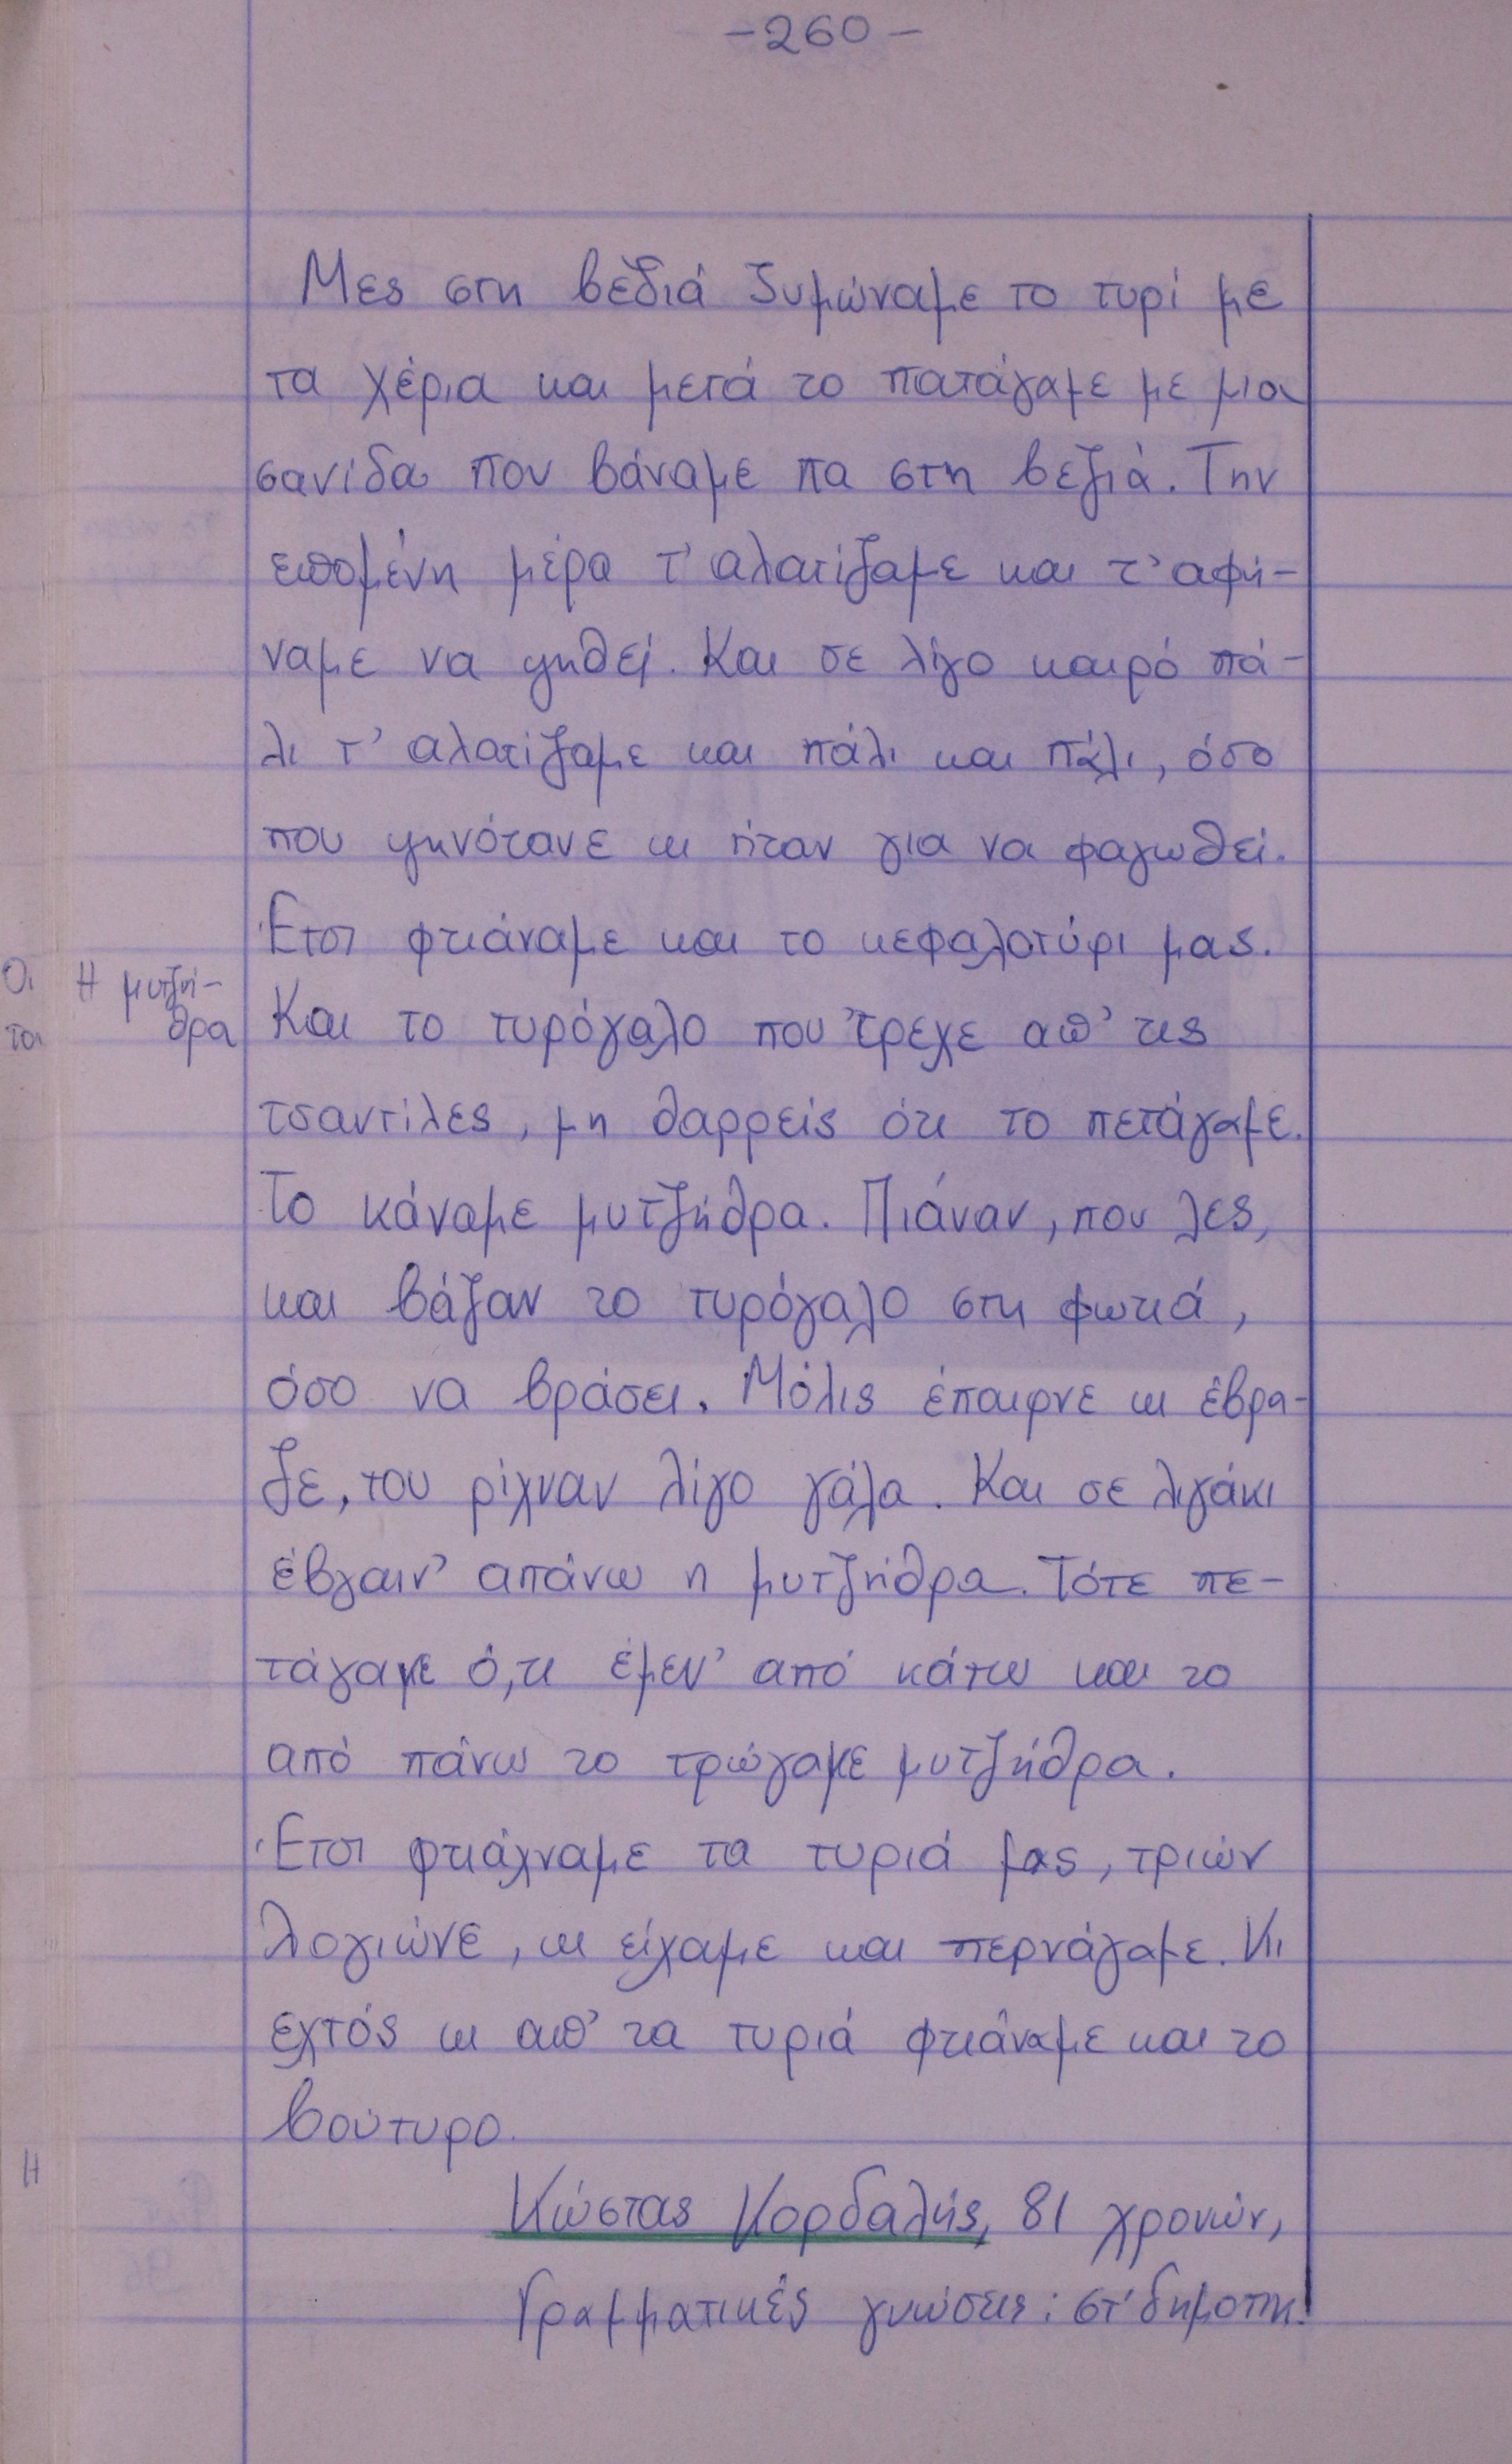 -260-
Μες στη βεδιά ζυμώναμε το τυρί με
τα χέρια και μετά το πατάγαμε με μια
σανίδα που βάναμε πα στη βεζιά. Την
επομένη μέρα τ' αλατίζαμε και τ' αφή-
ναμε να ψηθεί. Και σε λίγο καιρό πά-
λι τ' αλατίζαμε και πάλι και πάλι, όσο
που ψηνότανε κι ήταν για να φαγωθεί.
Έτσι φτιάναμε και το κεφαλοτύρι μας.
Οι Η μυτζή-
το θρα Και το τυρόγαλο που 'τρεχε απ' τις
τσαντίλες, μη θαρρείς ότι το πετάγαμε.
Το κάναμε μυτζήθρα. Πιάναν, που λες,
και βάζαν το τυρόγαλο στη φωτιά,
όσο να βράσει. Μόλις έπαιρνε κι έβρα-
ζε, του ρίχναν λίγο γάλα. Και σε λιγάκι
έβγαιν' απάνω η μυτζήθρα. Τότε πε-
τάγαμε ό,τι έμεν' από κάτω και το
από πάνω το τρώγαμε μυτζήθρα.
Έτσι φτιάχναμε τα τυριά μας, τριών
λογιώνε, κι είχαμε και περνάγαμε. Κι
εχτός κι απ' τα τυριά φτιάναμε και το
βούτυρο.
Η
Κώστας Κορδαλής, 81 χρονών,
Γραμματικές γνώσεις: στ' δημοτικ.